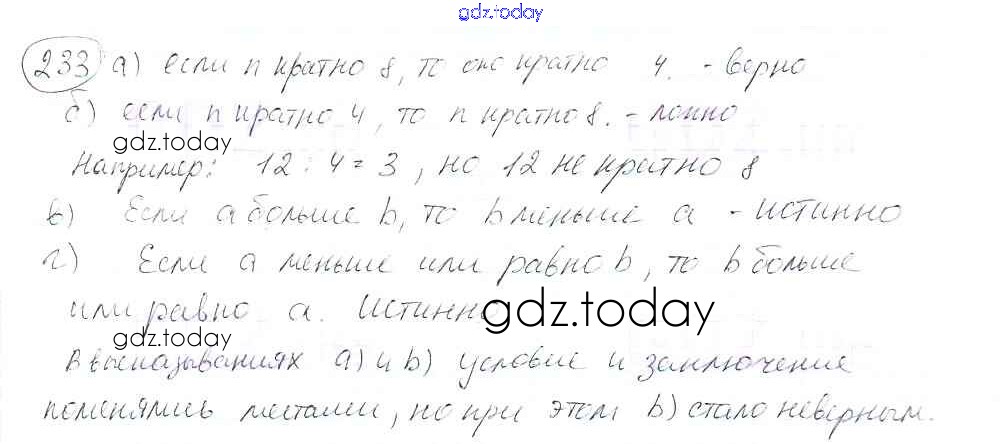 gdz.today
233 а) если n кратно 8, то оно кратно 4. - верно
б) если n кратно 4, то n кратно 8. - ложно
gdz.today
Например: 12 : 4 = 3, но 12 не кратно 8
в) Если a больше b, то b меньше a - истинно
г) Если a меньше или равно b, то b больше
или равно a. Истинно
gdz.today
gdz.today
В высказываниях а) и b) условие и заключение
поменялись местами, но при этом b) стало неверным.